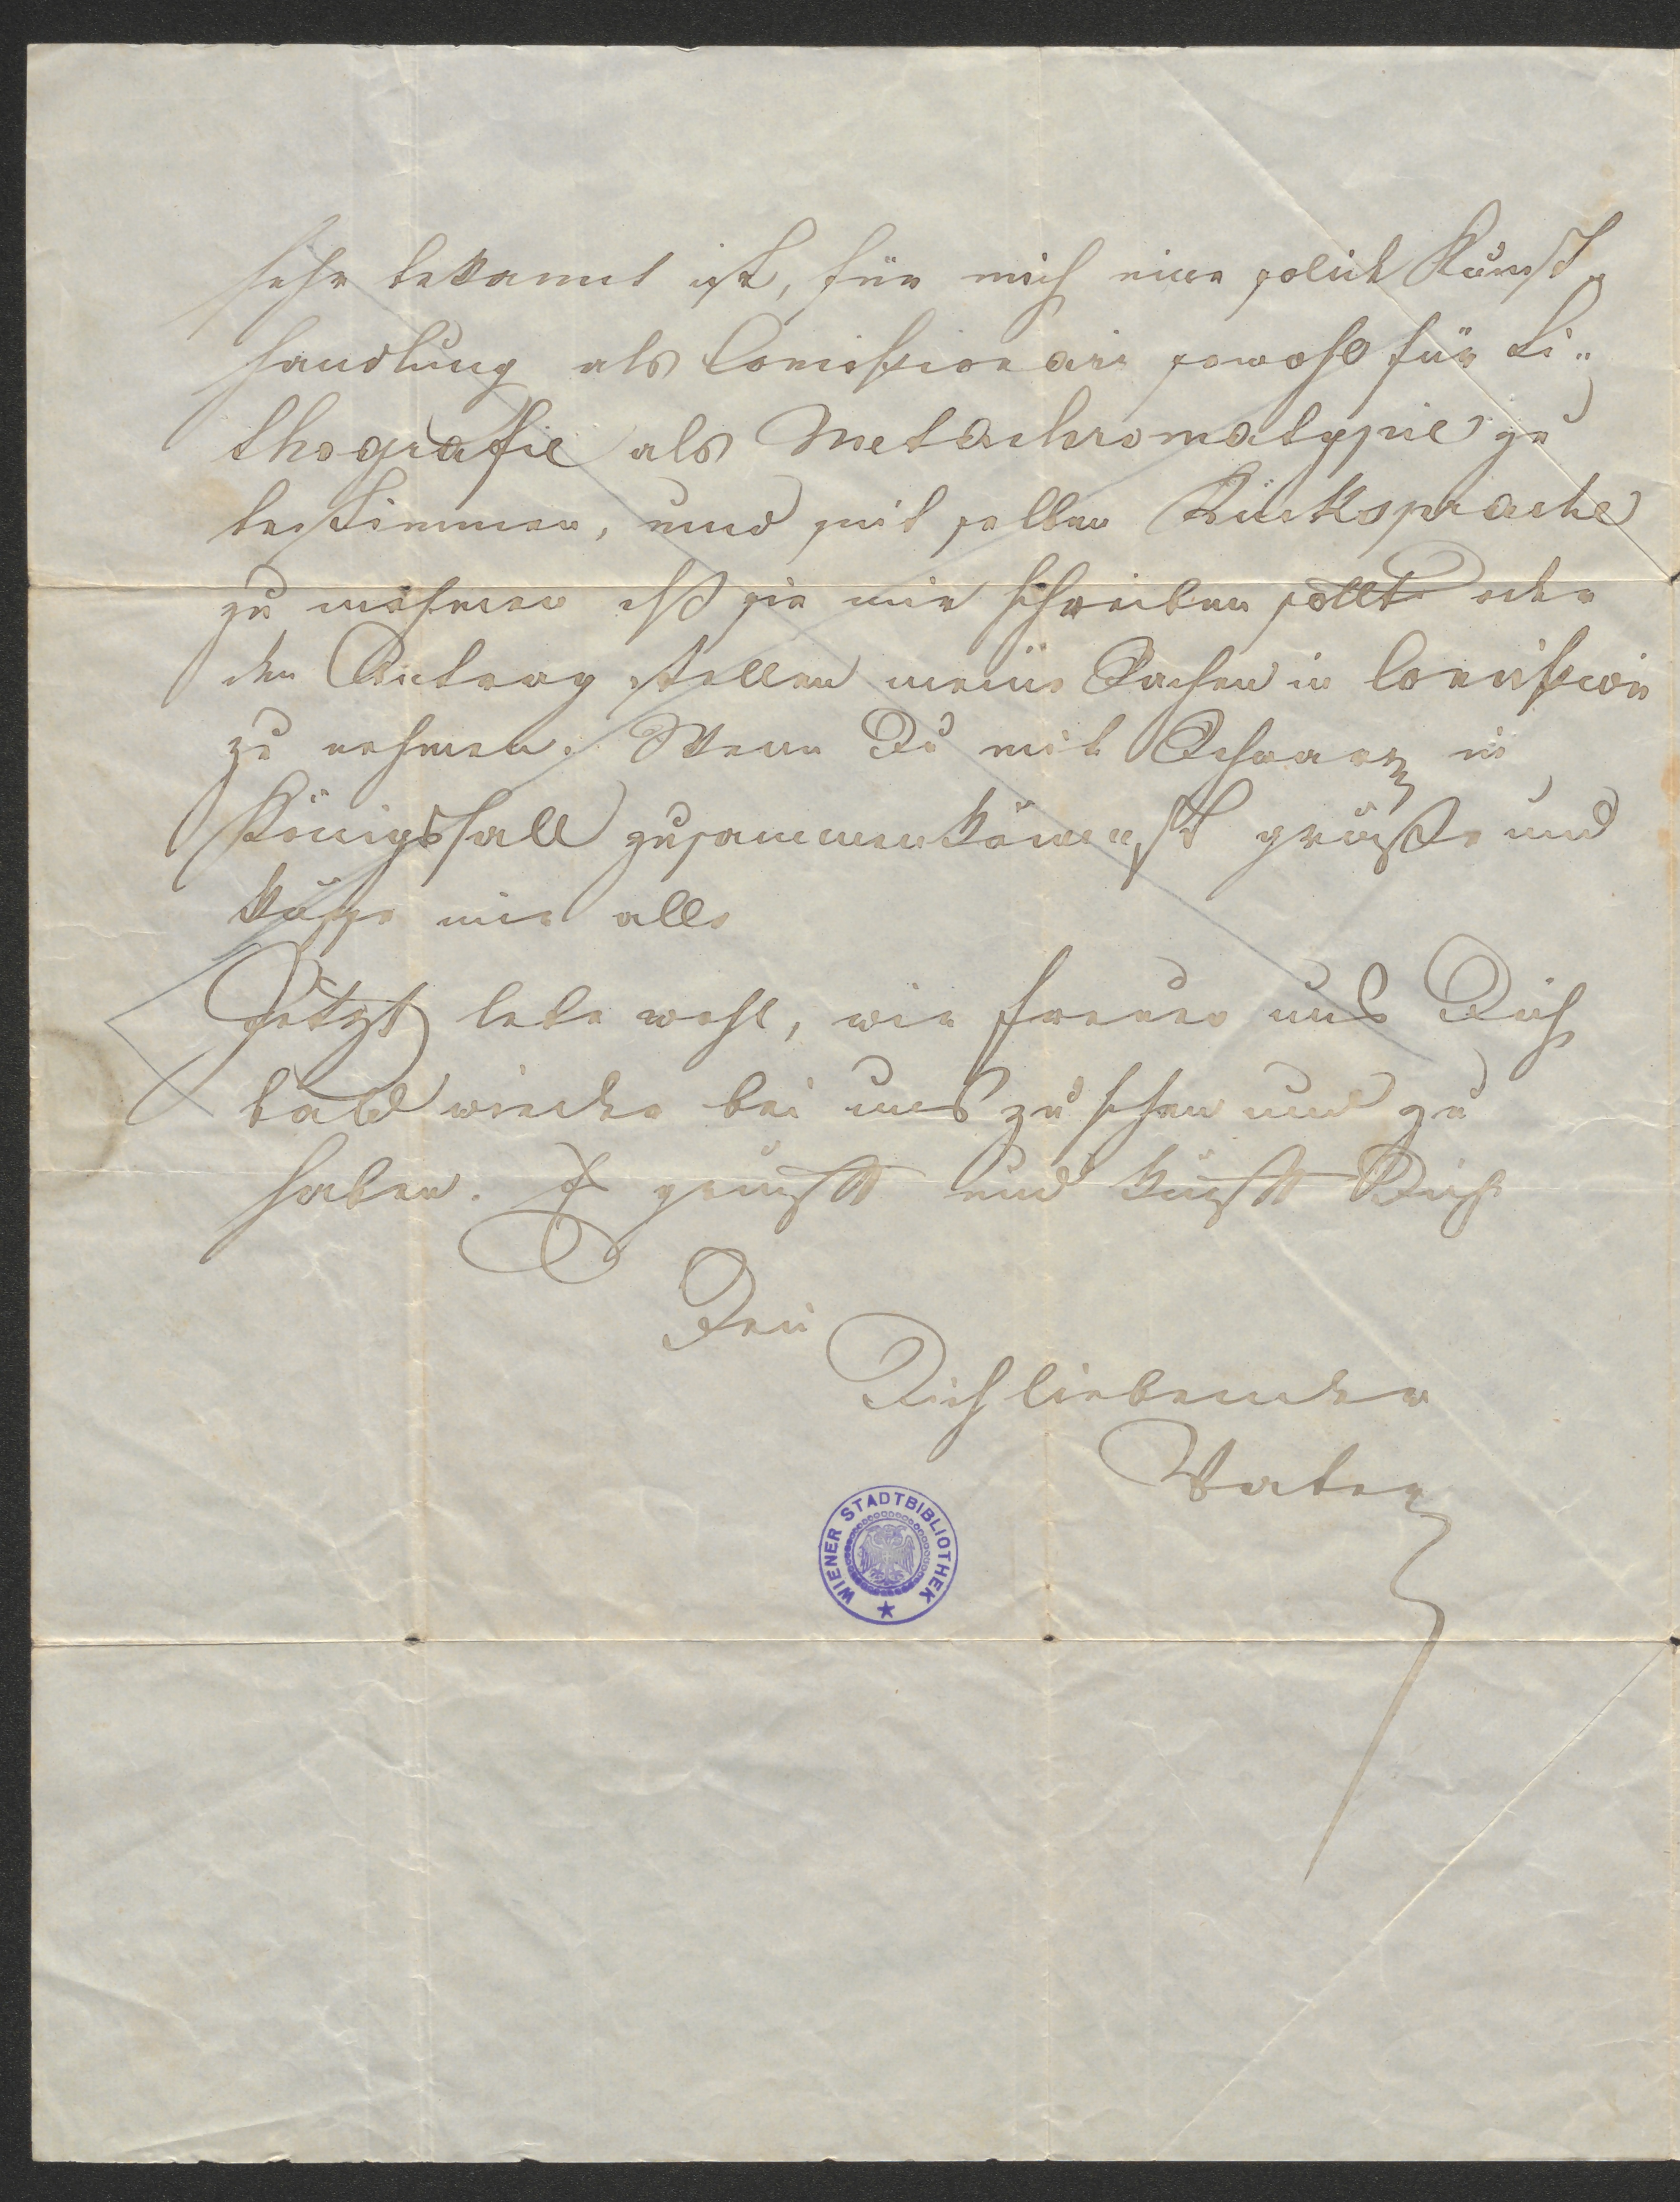 sehr bekannt ist, für mich eine solide Kunst„
handlung als Comissionair sowohl für Li„
thografie als Metachromatypie zu
bestimmen, und mit selben Rücksprache
zu nehmen daß sie mir schreiben sollte oder
den Antrag stellen meine Sachen in Comission
zu nehmen. Wenn Du mit Schwarz in
Königsall zusammenkömmst grüsse und
küsse mir alle
Jetzt lebe wohl, wir freuen uns Dich
bald wieder bei uns zu sehen und zu
haben. Es grüsst und küsst Dich
Dein
Dich liebender
Vater
WIENER STADTBIBLIOTHEK